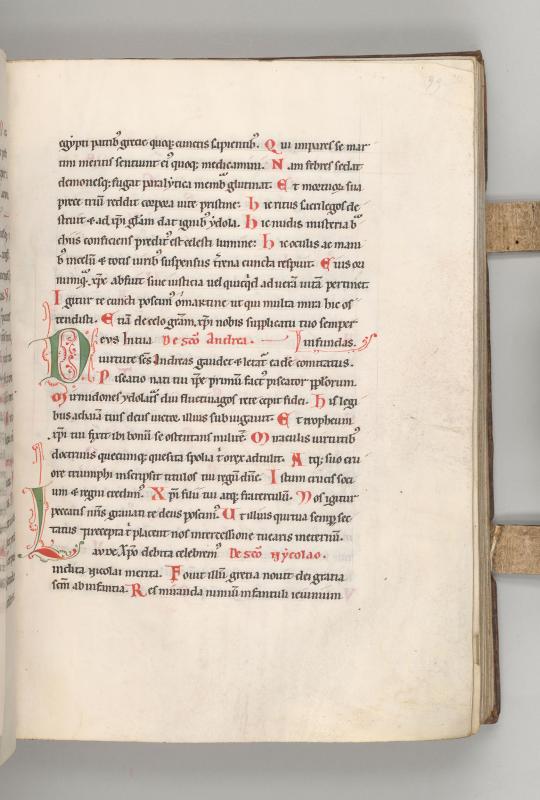 egypti patribꝰ grecie quoq; cunctis sapientibꝰ. Qui impares se mar
tini meritis sentiunt eiꝰ quoq; medicamini. Nam febres sedat
demonesq; fugat paralytica membꝰ glutinat. Et mortuoꝝ sua
prece triū reddit corpora uite pristine. hic ritus sacrilegos de
struit & ad xp̄i glām dat ignibꝰ ydola. hic nudis misteria bꝰ
chiis conficiens preditꝰ est celesti lumine. hic oculis ac mani
bꝰ in celū & totis uiribꝰ suspensus t̄rena cuncta respuit. Eius ori
numq̄ xp̄c abfuit siue iusticia uel quicq̄d ad uerā uitā pertinet.
Igitur te cuncti poscimꝰ o martine ut qui multa mira hic os
tendisti. Etiā de celo grām xp̄i nobis supplicatu tuo semper
infundas.
Deus in tua De sc̄o Andrea.
uirtute sc̄s Andreas gaudet & letatꝰ eadē comitatus.
Piscatio nati tui xp̄e primū factꝰ piscator pp̄lorum.
Mirmidones ydolatꝰ diu fluctiuagos rete cepit fidei. His legi
bus achaia tuis deus metre illius sub iugauit. Et tropheum
xp̄i tui fixit ibi bonū se ostentans militē. Miraculis uirtutibꝰ
doctrinis quecumq; quesita spolia t̄ o rex adtulit. Atq; suo cru
ore triumphi inscripsit titulos tui regni dn̄e. Istum crucis soci
um & regni credimꝰ. Xp̄i filii tui atq; fraterculū. Nos igitur
peccatis nr̄is grauati te deus poscimꝰ. Ut illius qui tua semꝑ sec
tatus precepta t̄ placent nos intercessione tuearis in eternū.
Laude xp̄o debita celebremꝰ De sc̄o Nycolao.
inclita nicolai merita. Fouit illū gretia nouit dei gratia
sc̄m ab infantia. Res miranda nimiū infantuli ieiunium